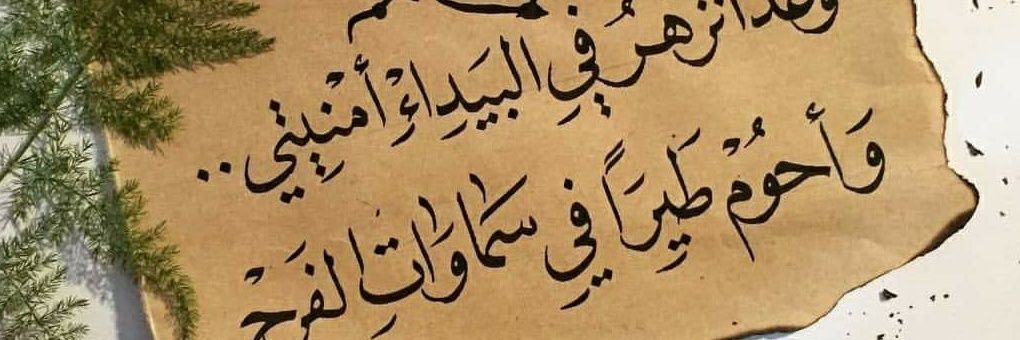 وغدا تزهرُ في البَيَدِاءِْ أمنْيتي ..
وَأحوُمْ طَيِرَاً فيِ سَمَاوَاتِ الفَرَحْ